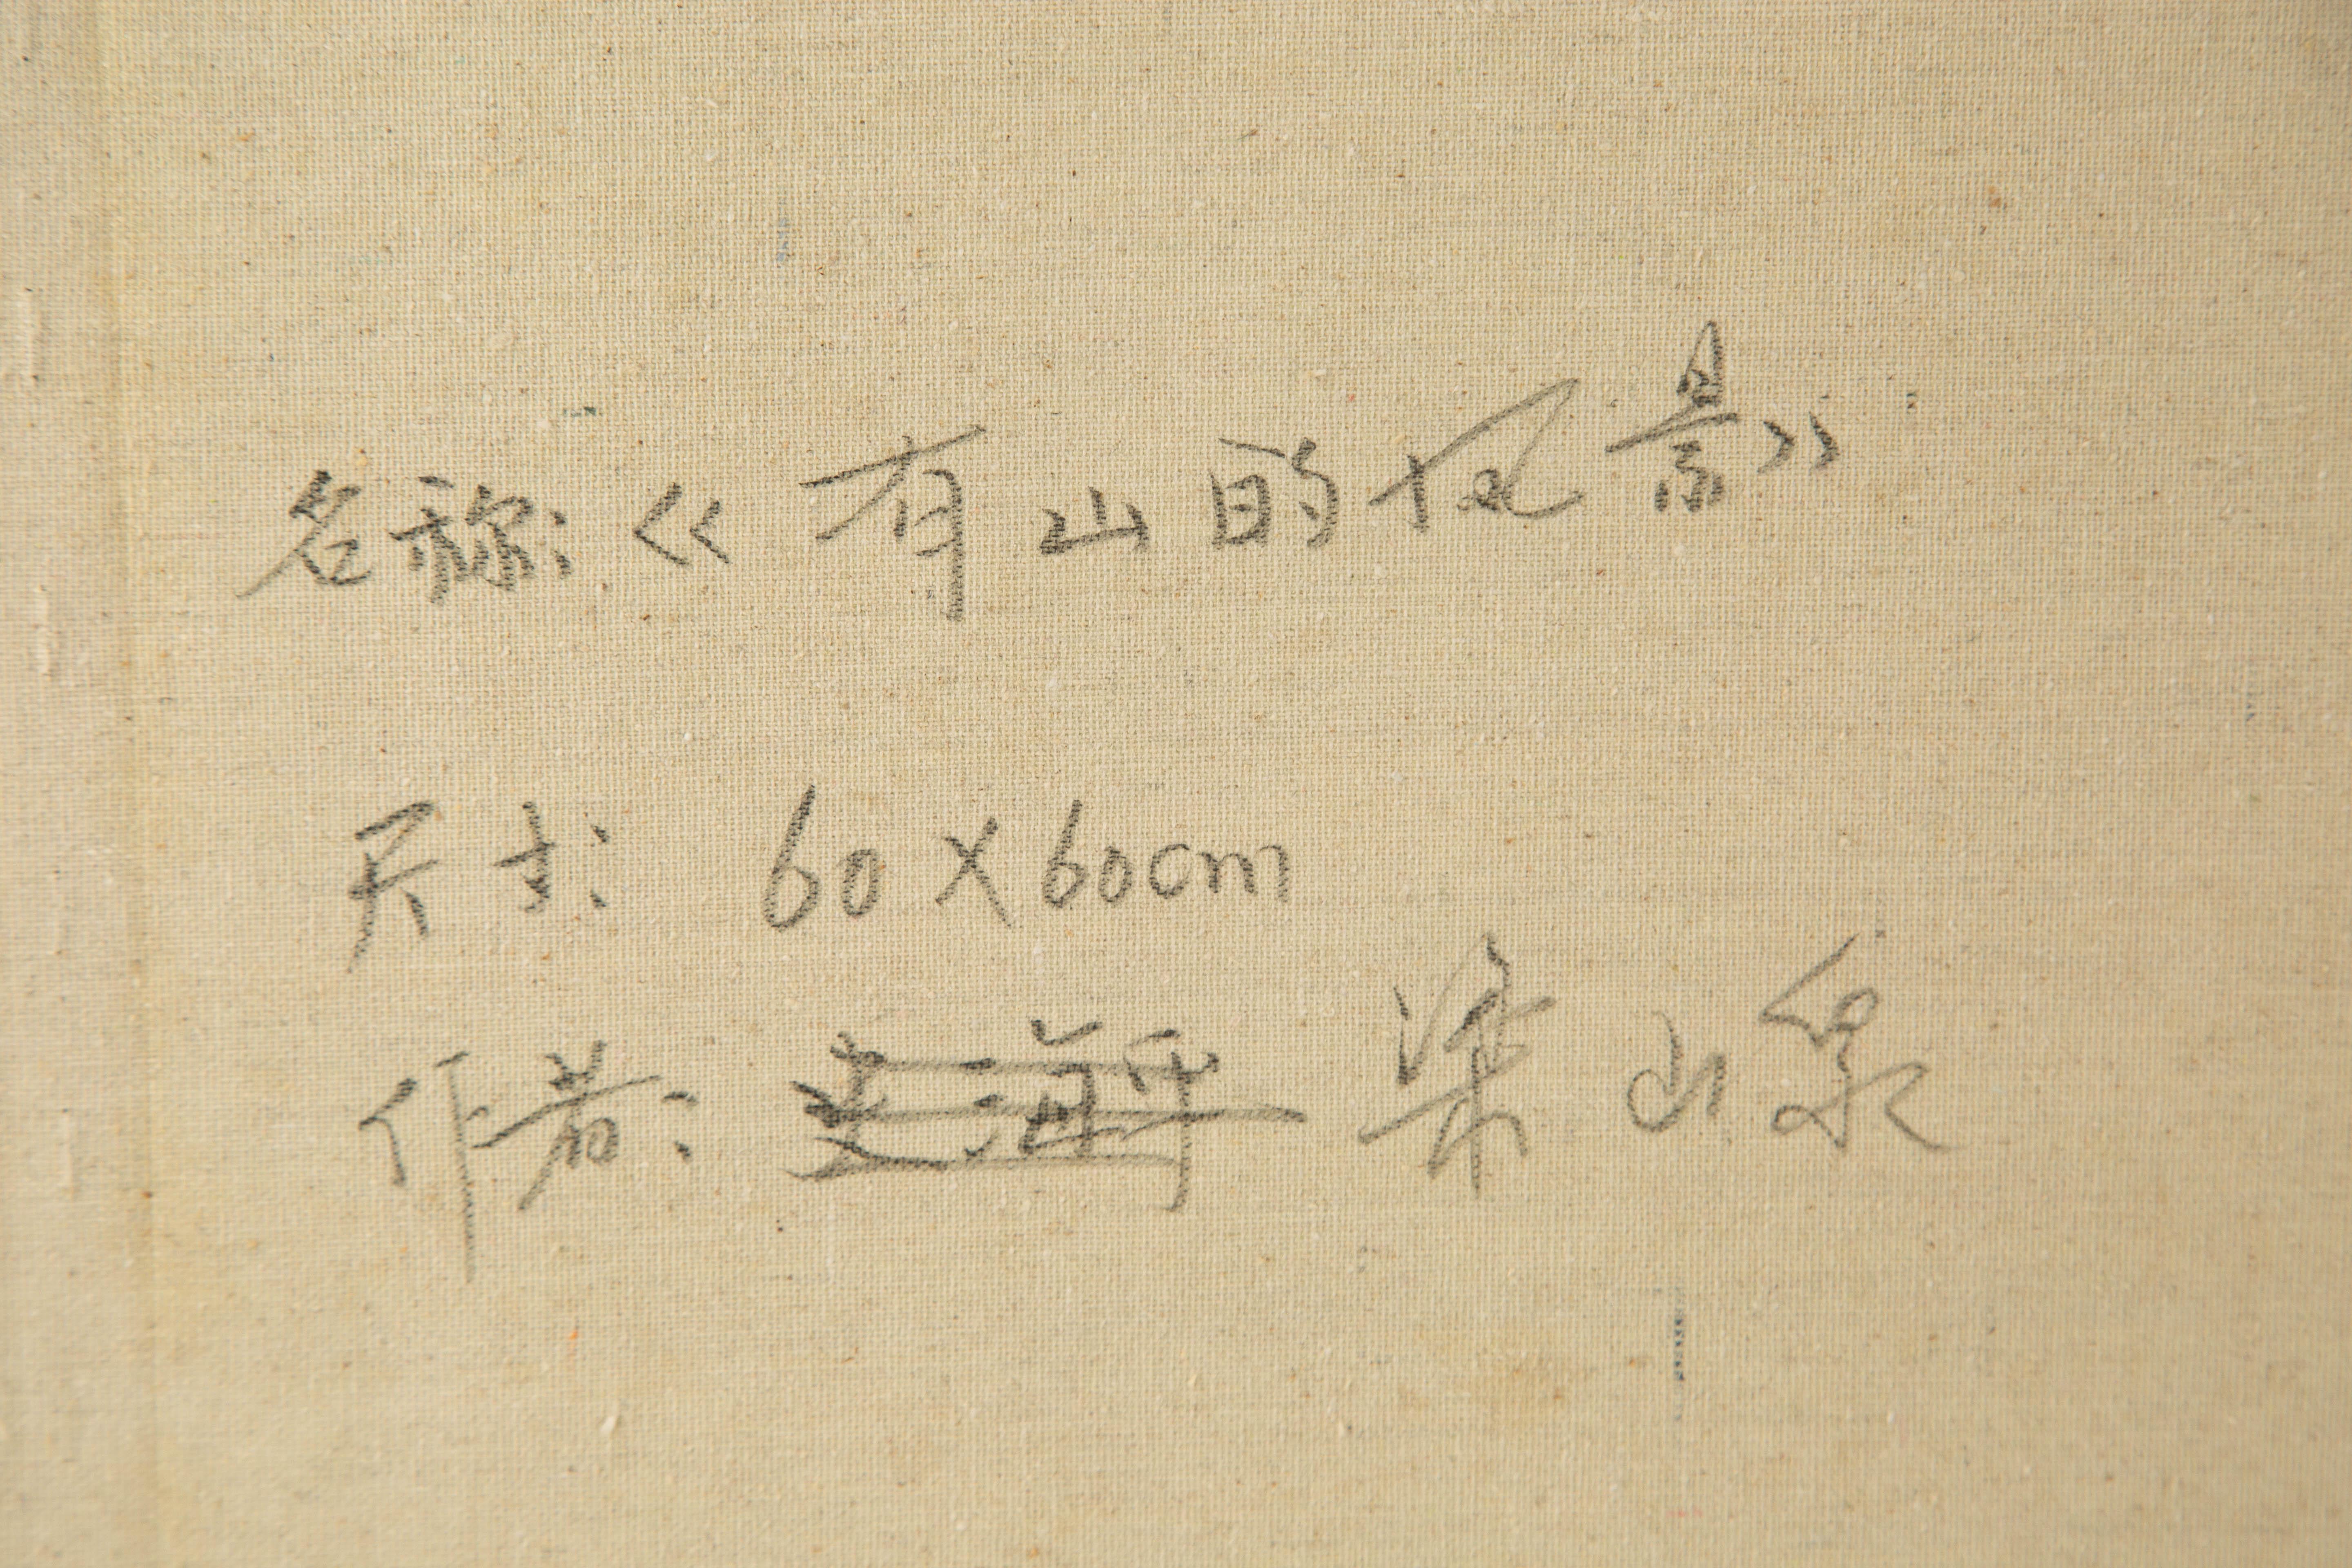 名称:《有山的风景》
尺寸: 60×60cm
作者: 梁山泉